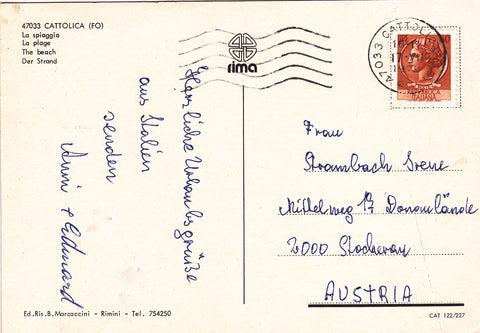 47033 CATTOLICA (FO)
La spiaggia
La plage
The beach
Der Strand
rima
47033 CATTOLI
ITALIANA
Herzliche Urlaubsgrüße
aus Italien
senden
Anni + Edmard
Frau
Strambach Irene
Mittelweg 17 Donaulände
2000 Stockerau
AUSTRIA
Ed.Ris.B.Marcaccini - Rimini - Tel. 754250
CAT 122/227